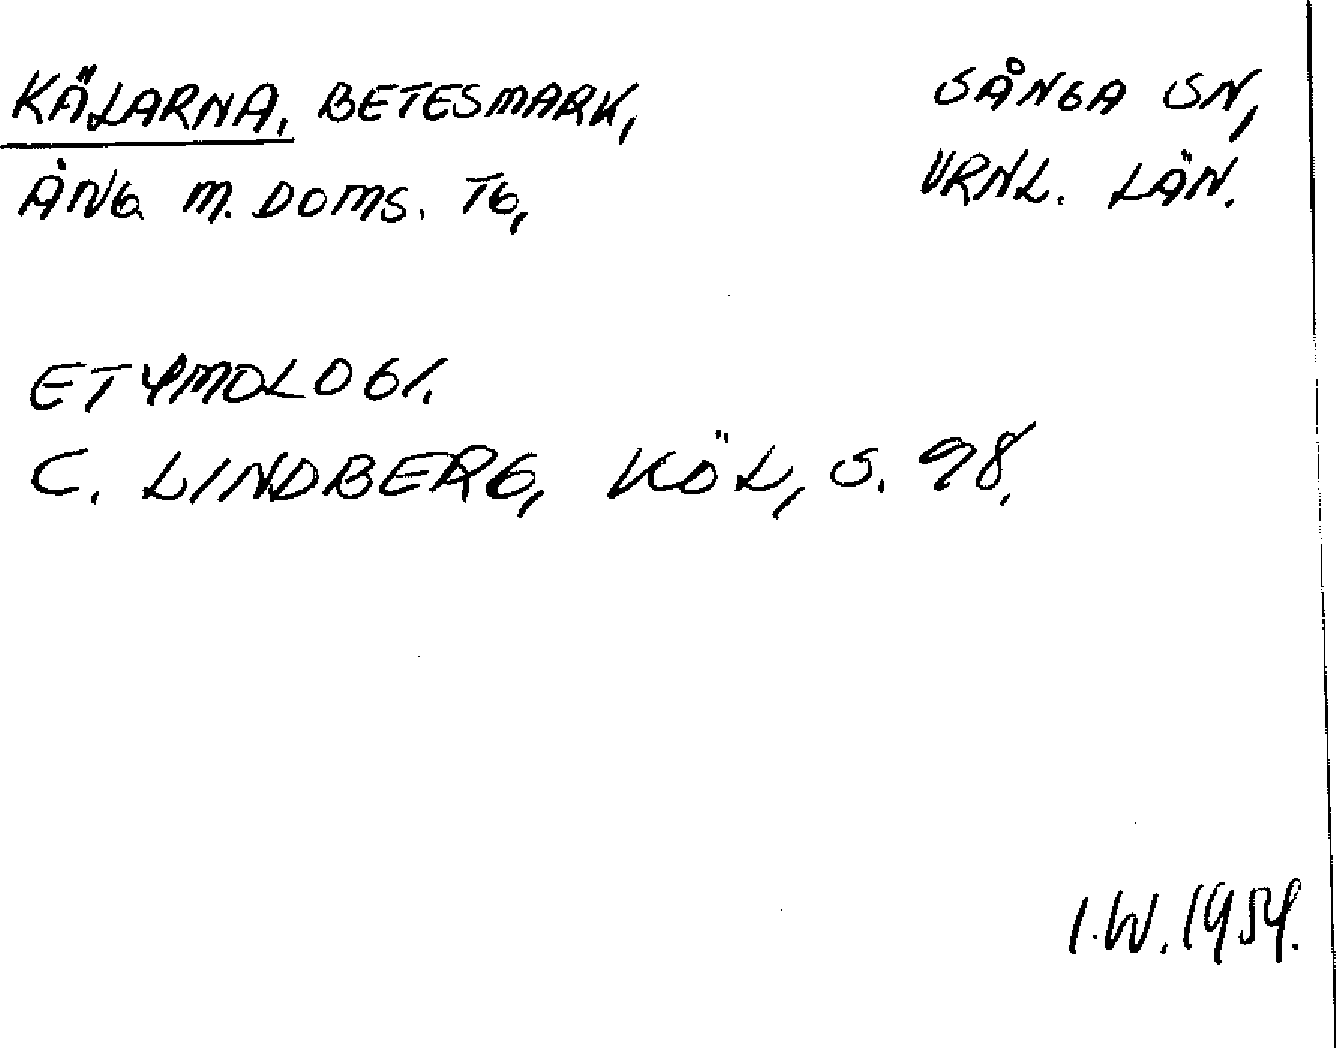 KÄLARNA, BETESMARK,
ÅNG. M. DOMS. TG,
SÅNGA SN,
VRNL. LÄN.
ETYMOLOGI.
C. LINDBERG, KÖL, S. 98.
I.W. 1954.